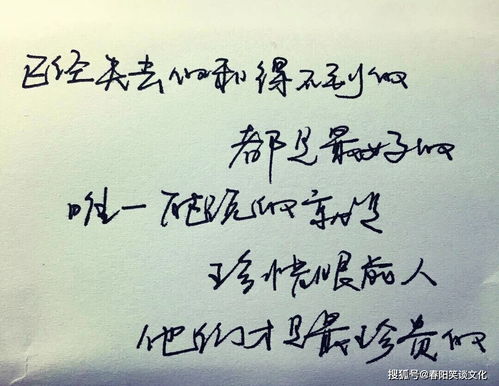 已经失去的和得不到的
都是最好的
唯一能玩的就是
珍惜眼前人
他们才是最珍贵的
搜狐号@春阳笑谈文化